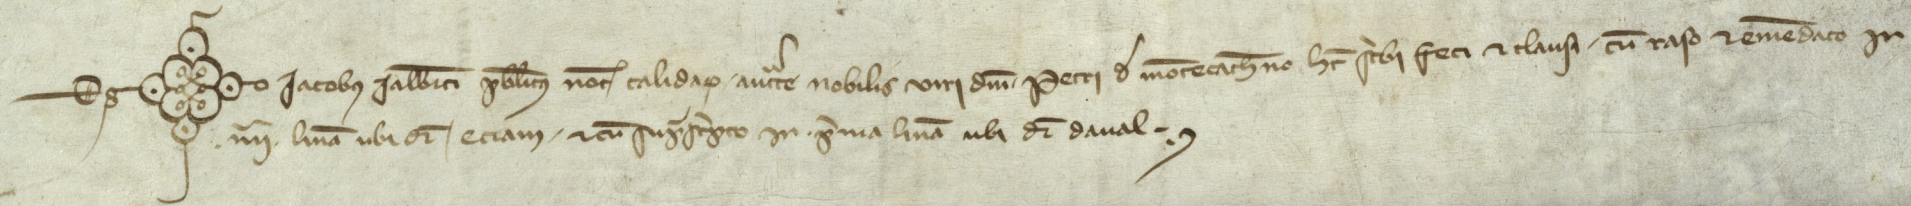 Ego Jacobus Jalberti publicus not calidar auctte nobilis viri dni Petri d montecatheno hec scbi feci et clausi cum raso et emendato in
.iiii. linea ubi dr eciam et cum suprascripto in prima linea ubi dr daval.